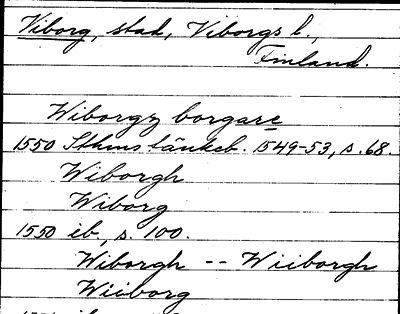 Viborg, stad, Viborgs l.,
Finland.
Wiborgz borgare
1550 Sthms tänkeb. 1549-53, s. 68.
Wiborgh
Wiborg
1550 ib., s. 100.
Wiborgh -- Wiiborgh
Wiiborg